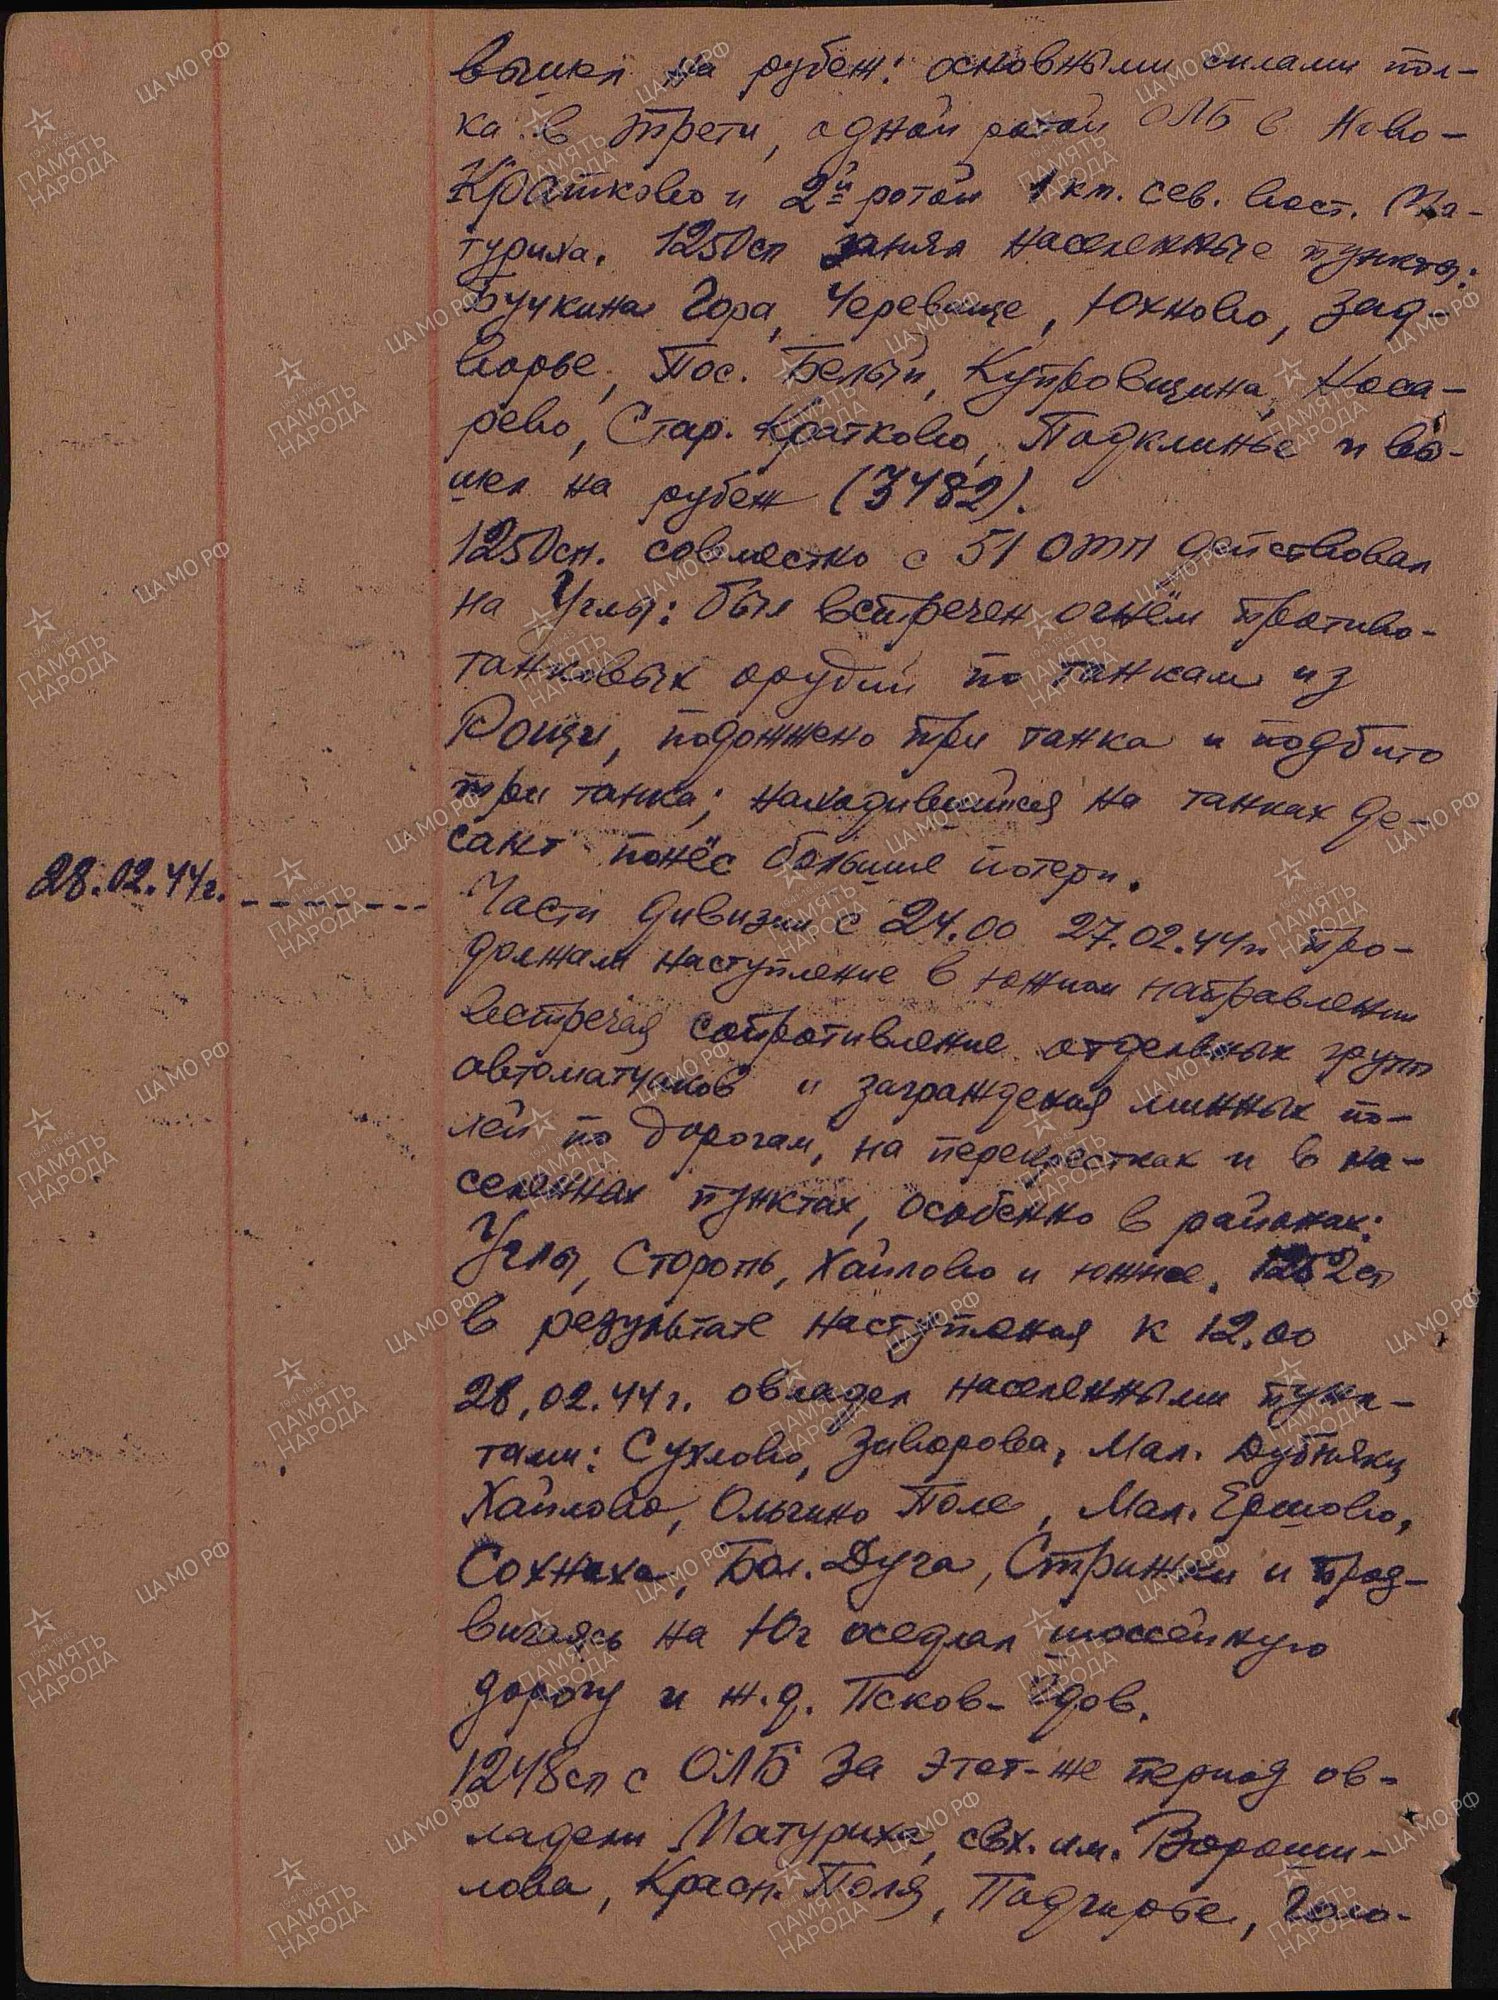 вышел на рубеж: основными силами пол-
ка в Трети, одной ротой ОЛБ в Ново-
Кратково и 2й ротой 1 км. сев. вост. Ма-
туриха. 1250сп занял населенные пункты:
Бучкина Гора, Черевище, Юхново, Зад-
ворье, Пос. Белый, Купровщина, Носа-
рево, Стар. Кратково, Подклинье и вы-
шел на рубеж (3482).
1250сп. совместно с 51 ОТП действовал
на Углы: был встречен огнём противо-
танковых орудий по танкам из
Рощи, подожжено три танка и подбито
три танка; находившийся на танках де-
сант понёс большие потери.
28.02.44г.
Части дивизии с 24.00 27.02.44г про-
должали наступление в южном направлении
встречая сопротивление отдельных групп
автоматчиков и заграждения минных по-
лей по дорогам, на перекрестках и в на-
селенных пунктах, особенно в районах:
Углы, Сторопь, Хайлово и южнее. 1252сп
в результате наступления к 12.00
28.02.44г. овладел населенными пунк-
тами: Сухлово, Заворова, Мал. Дубняки
Хайлово, Ольгино Поле, Мал. Ершово,
Сохнеха, Бол. Дуга, Стрижки и прод-
вигаясь на Юг оседлал шоссейную
дорогу и ж.д. Псков-Гдов.
1248сп с ОЛБ за этот-же период ов-
ладели Матуриха, свх. им. Вороши-
лова, Красн. Поля, Подгорье, Голо-